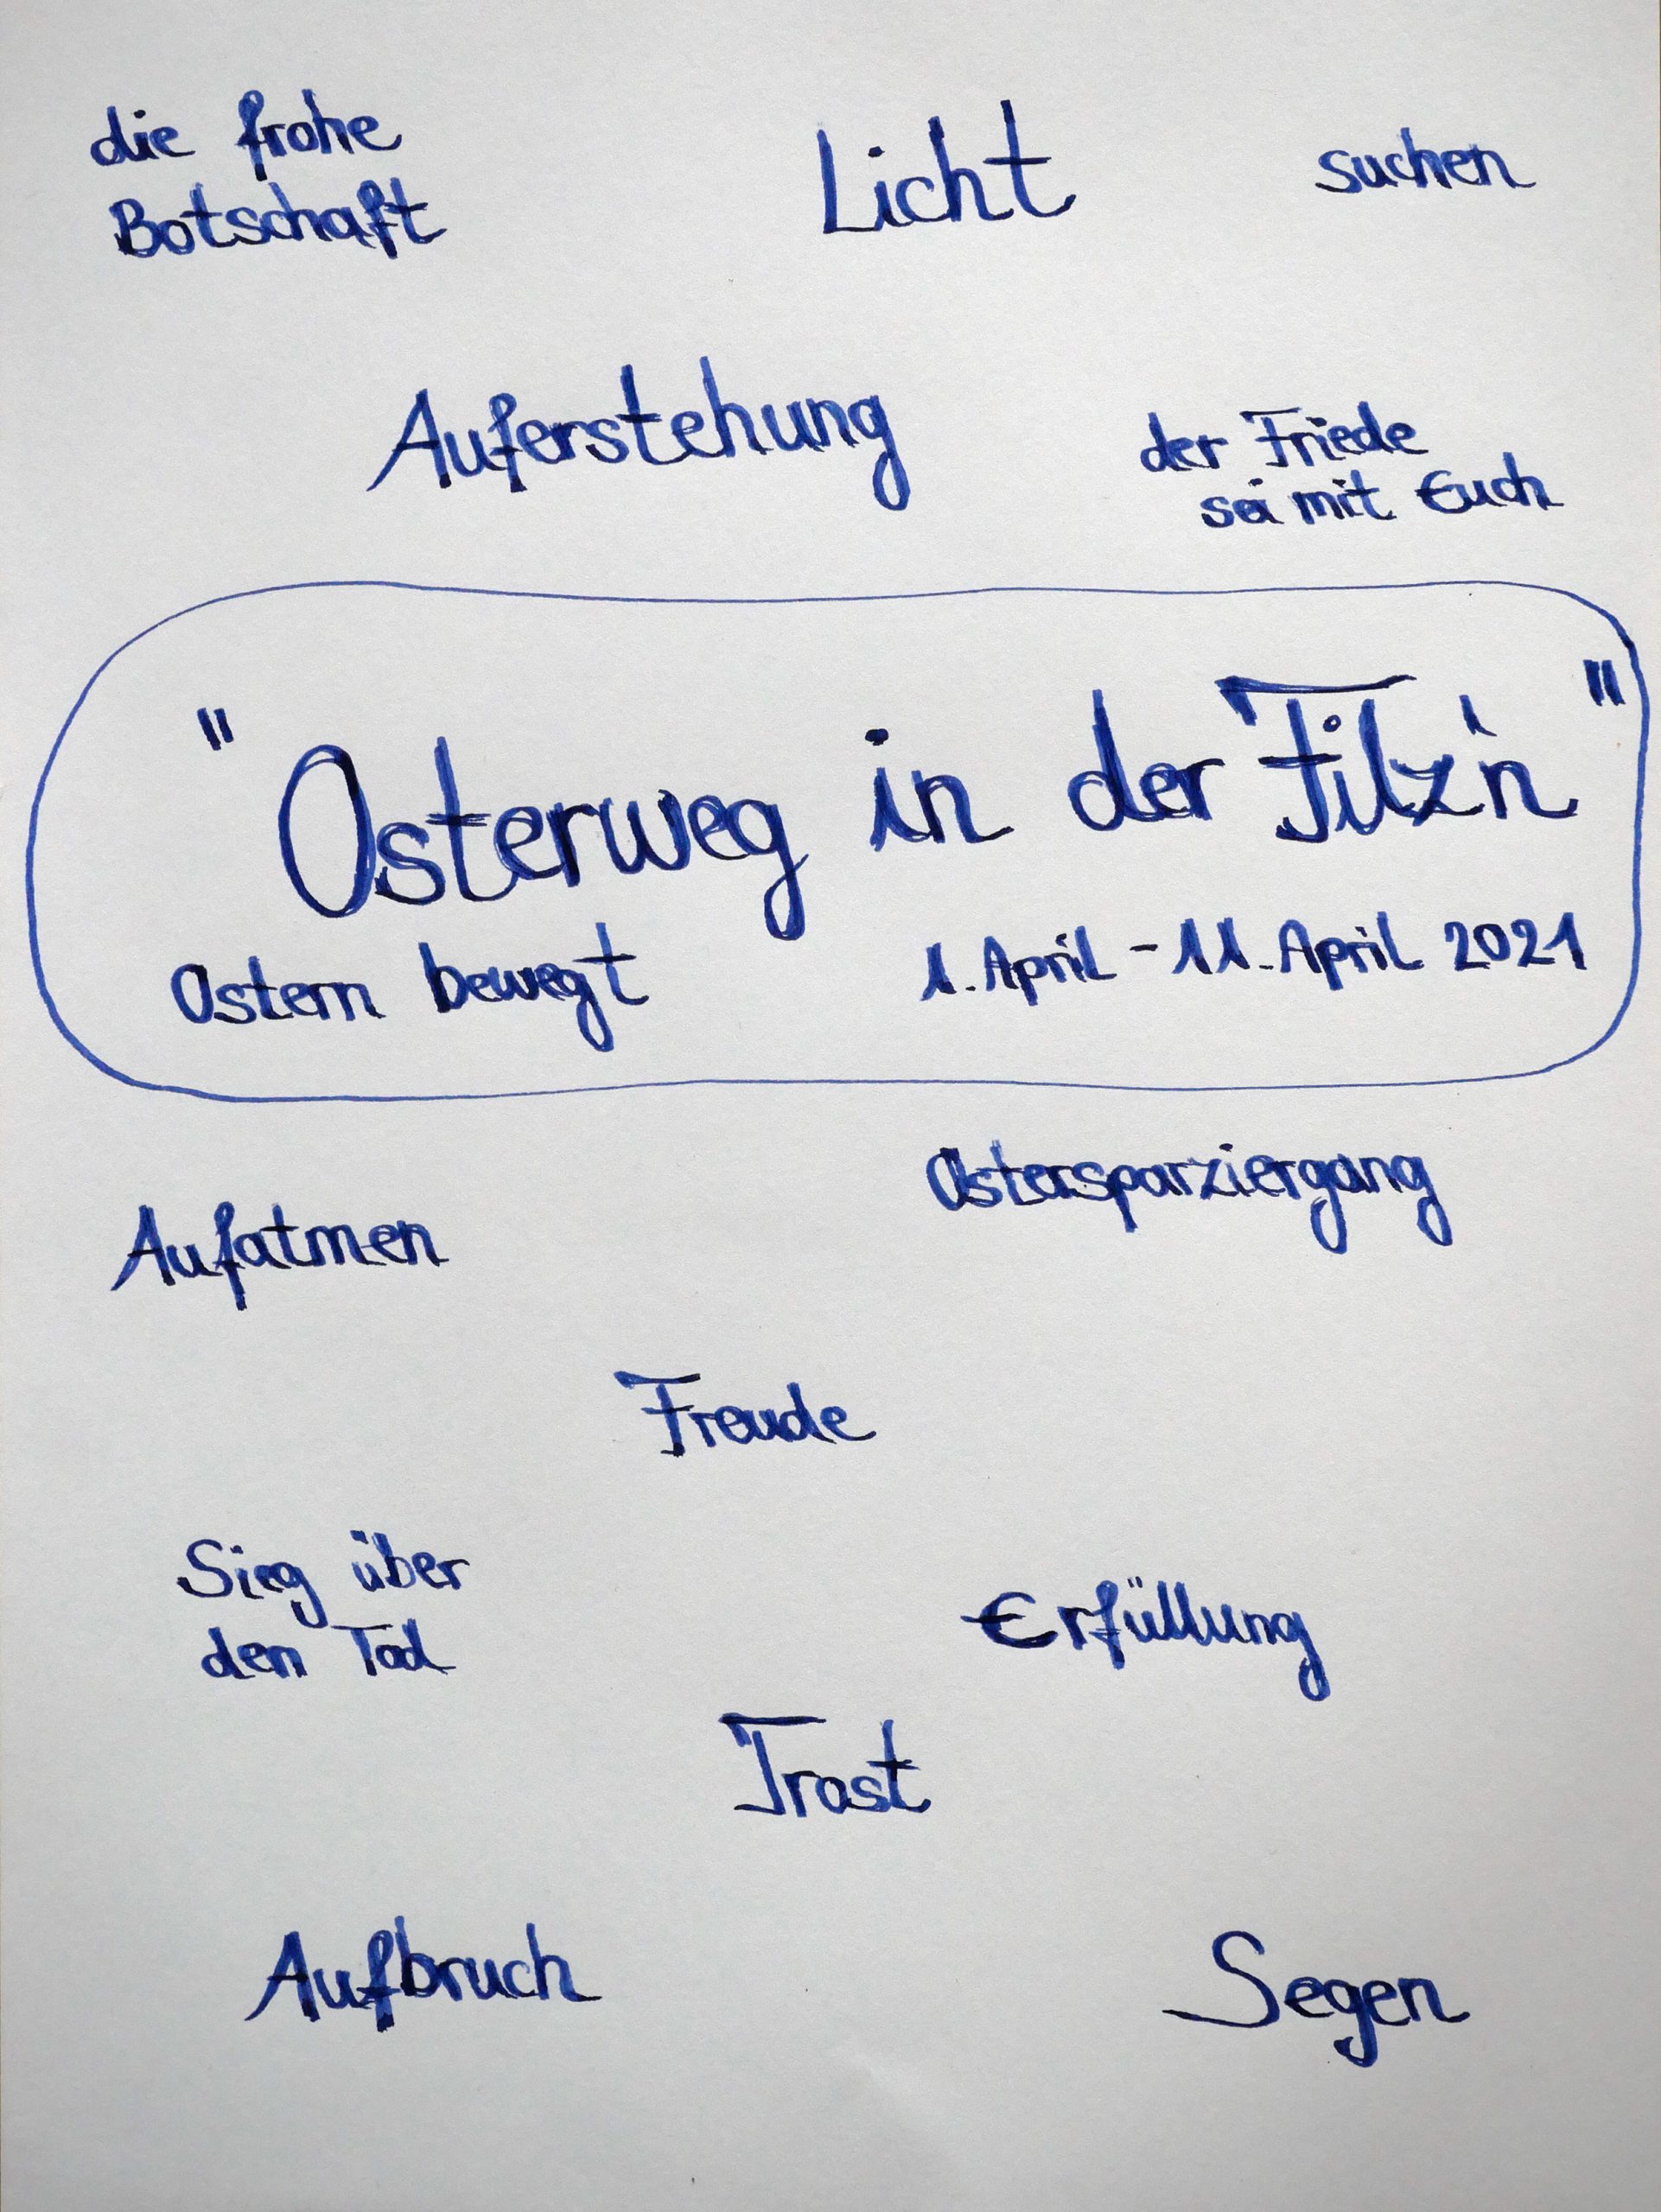 die frohe
Botschaft
Licht
suchen
Auferstehung
der Friede
sei mit Euch
"Osterweg in der Filz'n"
Ostern bewegt
1. April - 11. April 2021
Ostersparziergang
Aufatmen
Freude
Sieg über
den Tod
Erfüllung
Trost
Aufbruch
Segen